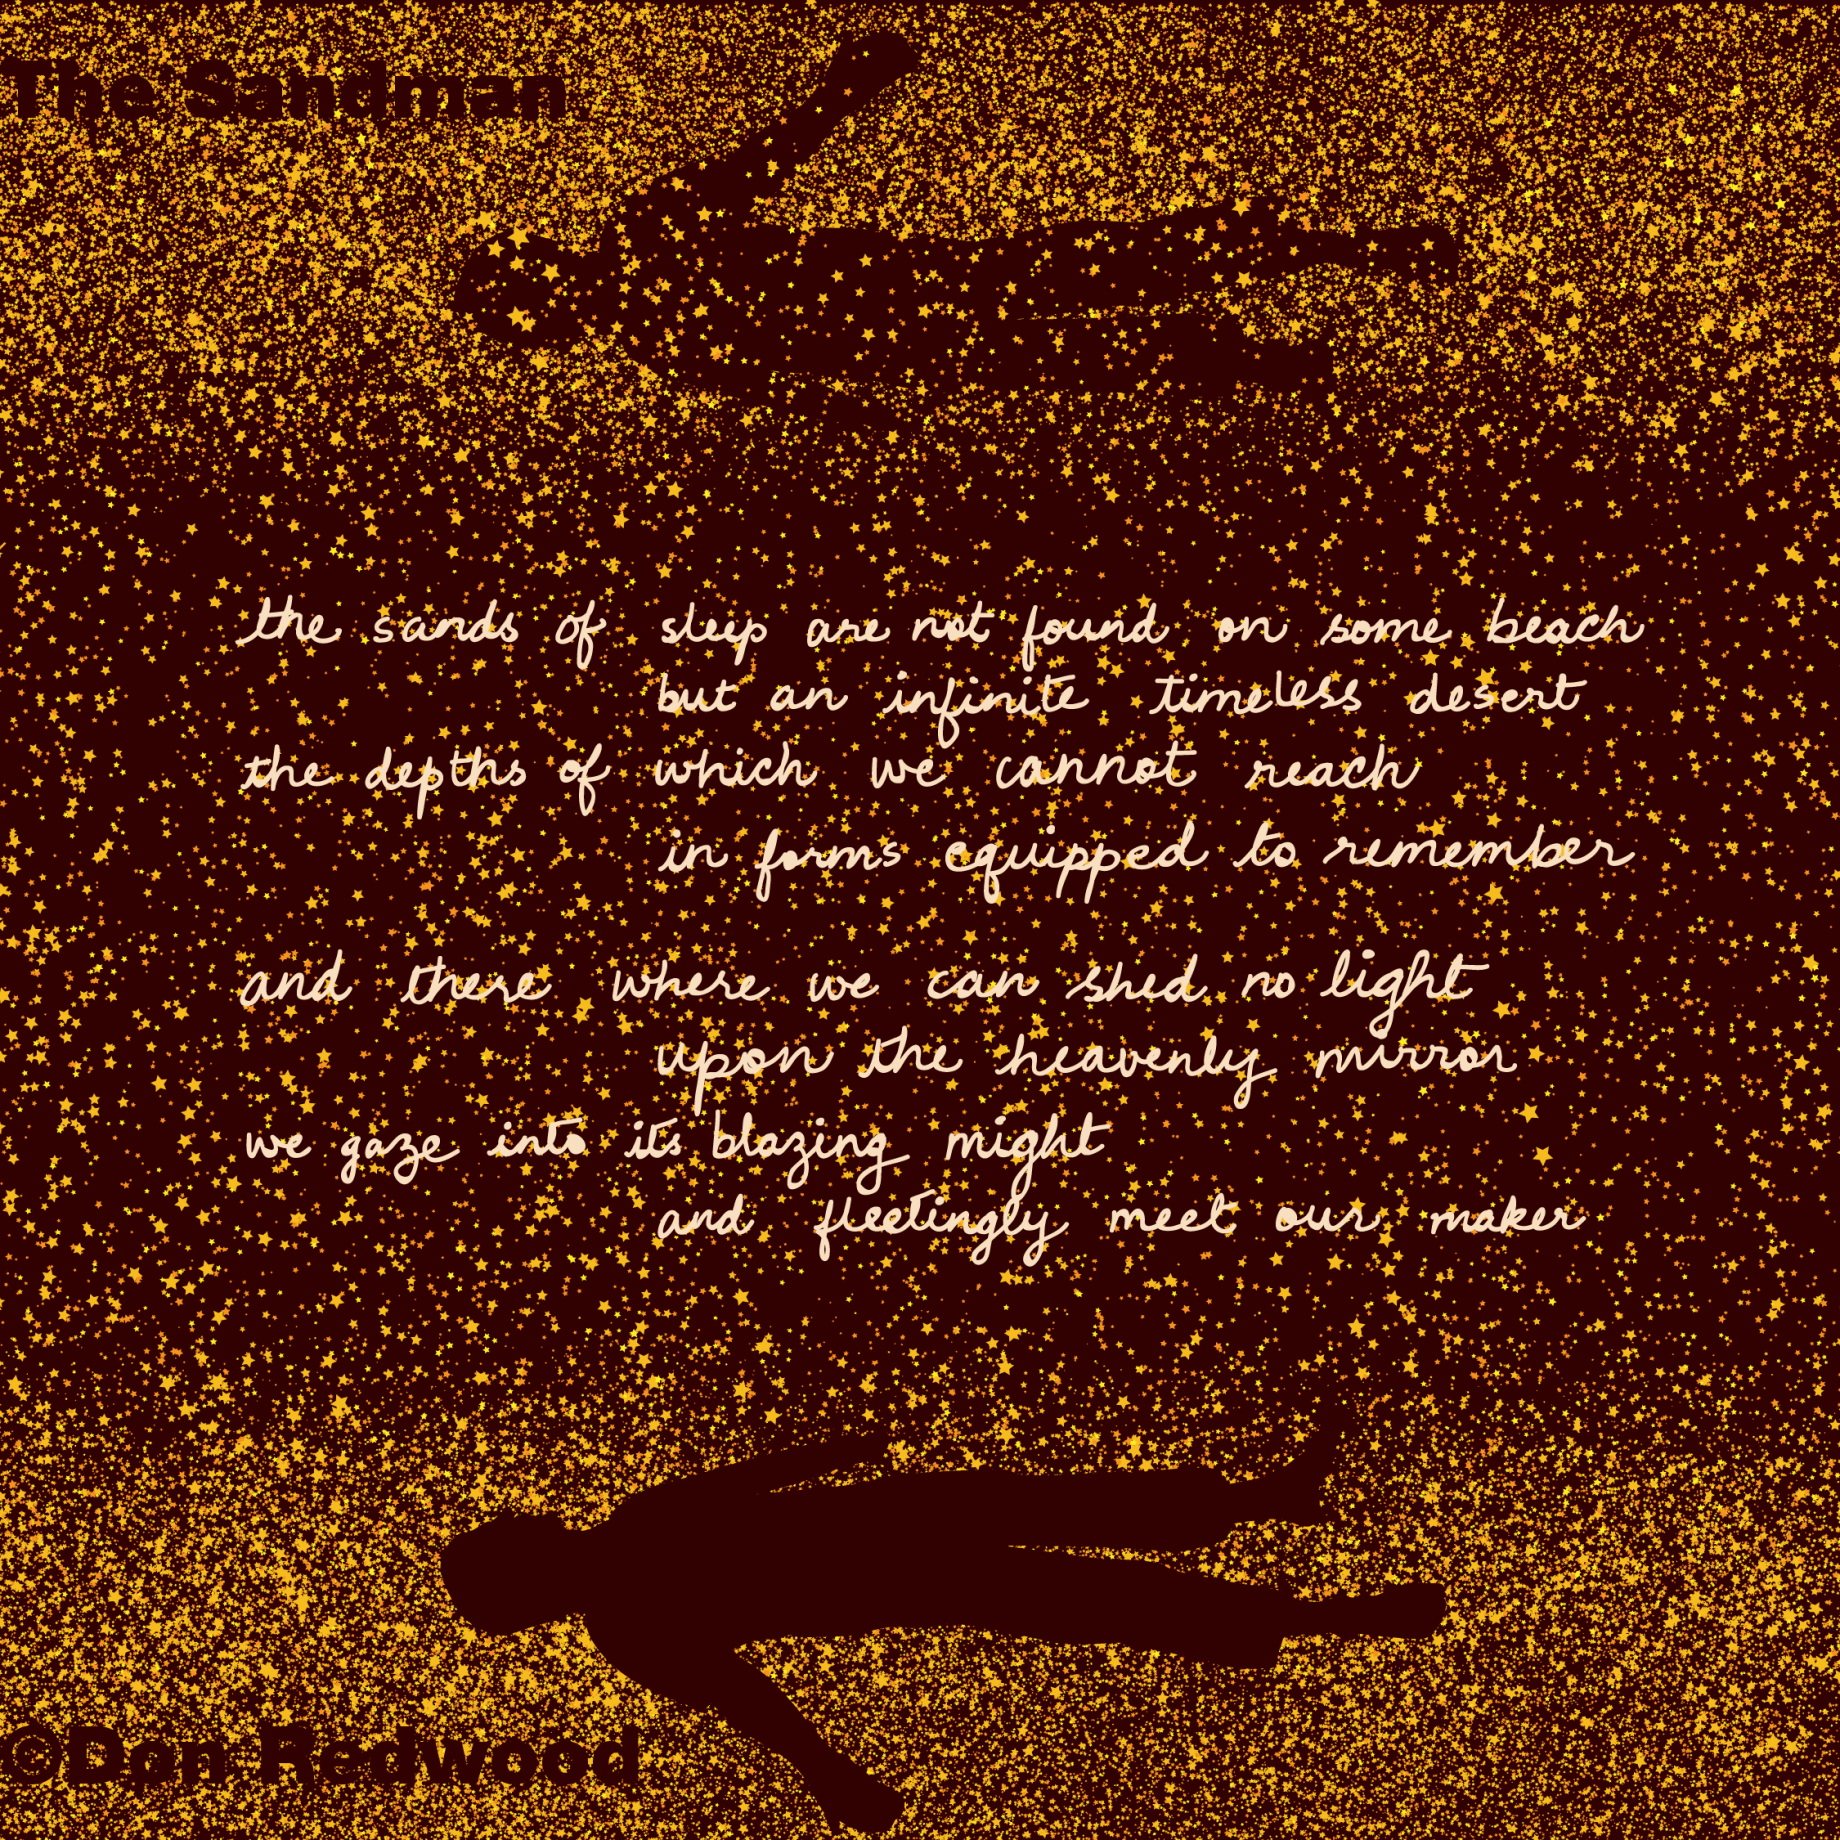 The Sandman
the sands of sleep are not found on some beach
but an infinite timeless desert
the depths of which we cannot reach
in forms equipped to remember
and there where we can shed no light
upon the heavenly mirror
we gaze into its blazing might
and fleetingly meet our maker
©Don Redwood